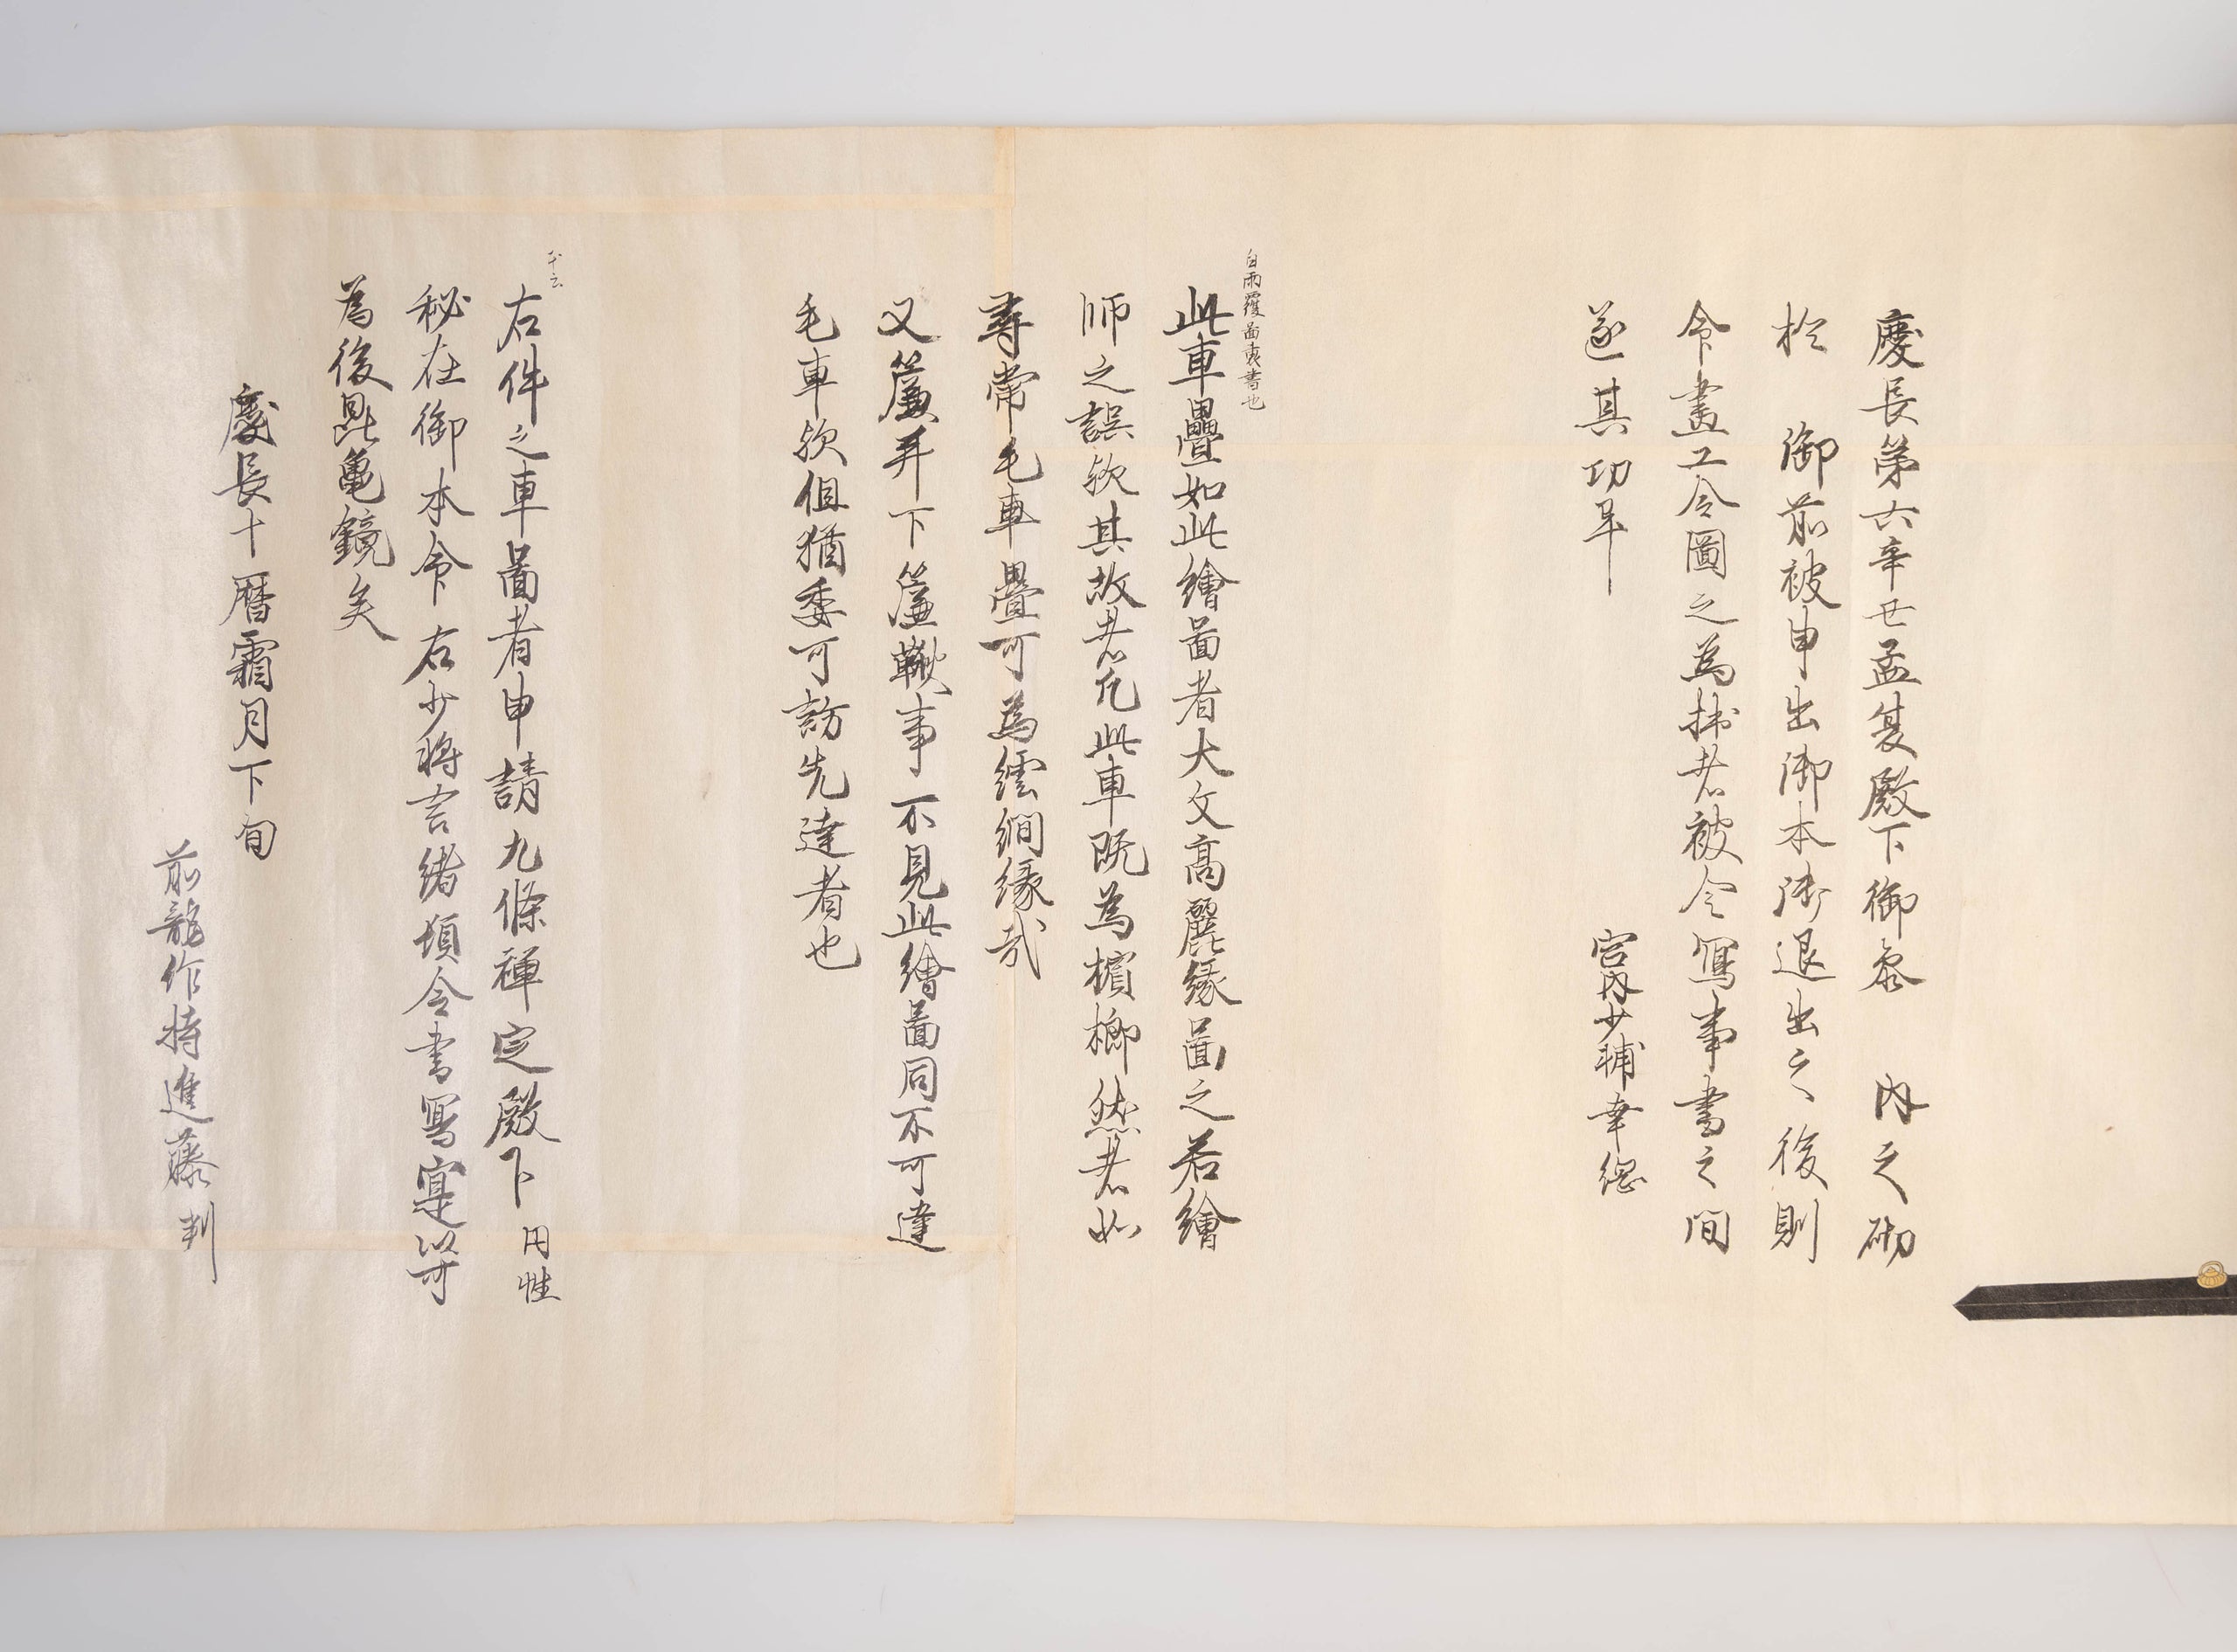 慶長第六辛丑孟夏殿下御参　内之砌
於　御前被申出御本御退出之後則
令畫工令圖之為抔者被令寫事書之間
遂其功畢
宮内少輔幸綱
自雨覆面裏書也
此車疊如此繪圖者大文高麗緣圖之若繪
師之誤欤其故者凡此車既為檳榔然者如
尋常毛車疊可為繧繝緣哉
又簾并下簾鞦事不見此繪圖同不可違
毛車欤但猶委可訪先達者也
本云
右件之車圖者申請九條禅定殿下円性
秘在御本令右少将言緒頃令書寫寔以可
為後昆亀鏡矣
慶長十暦霜月下旬
前龍作特進藤判